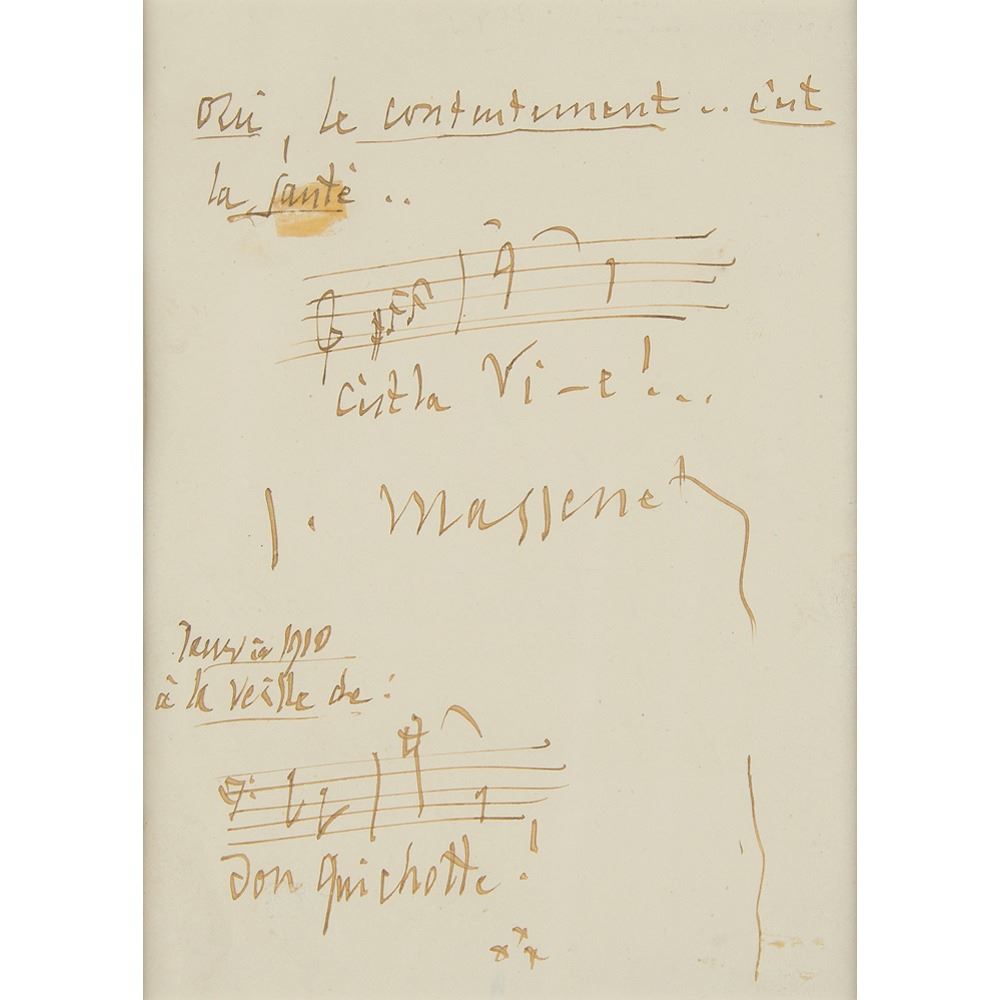 Oui, le contentement .. c'est
la santé ..
C'est la Vi - e ! ...
J. Massenet
Janvier 1910
à la veille de :
Don Quichotte !